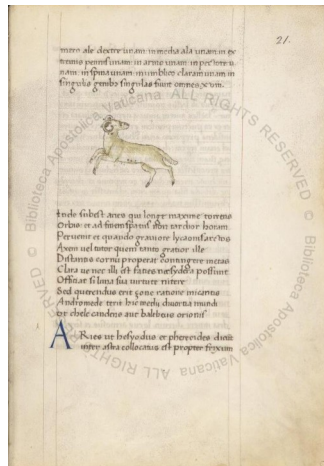 21.
mero ale dextre unam in media ala unam in ex
tremis pennis unam in armo unam in pectore u
nam in spina unam in umblico claram unam in
singulis genibus singulas fiunt omnes xviii.
Inde subest aries qui longe maxime currens
Orbis et ad finem spatii non tardior horam
Pervenit et quando graviore lycaon
Axem tanto gravior ille
Distantis cornu properat contingere metas
Clara nec illi est facies nec sydera possunt
Officiat si luna sua virtute nitere
Sed querendus erit zone ratione micantis
Andromede terit hic medii divortia mundi
ut chele candens aut baltheus orionis
ARies ut hesyodus et pherecides dicit
inter astra collocatus est propter fryxum
© Biblioteca Apostolica Vaticana ALL RIGHTS RESERVED